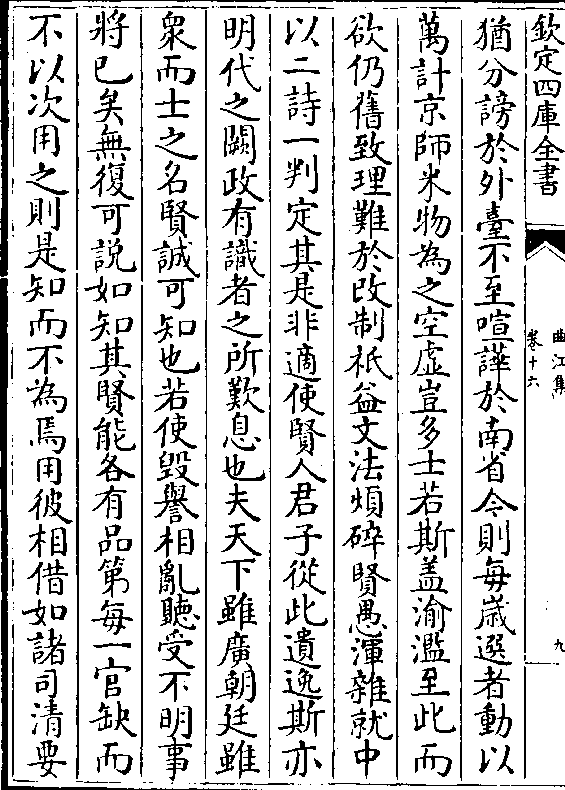 欽定四庫全書
曲江集
卷十六
九
猶分謗於外臺不至喧譁於南省今則每歲選者動以
萬計京師米物為之空虛豈多士若斯盖渝濫至此而
欲仍舊致理難於改制祇益文法煩碎賢愚渾雜就中
以二詩一判定其是非適使賢人君子從此遺逸斯亦
明代之闕政有識者之所歎息也夫天下雖廣朝廷雖
衆而士之名賢誠可知也若使毀譽相亂聽受不明事
將已矣無復可說如知其賢能各有品第每一官缺而
不以次用之則是知而不為焉用彼相借如諸司清要